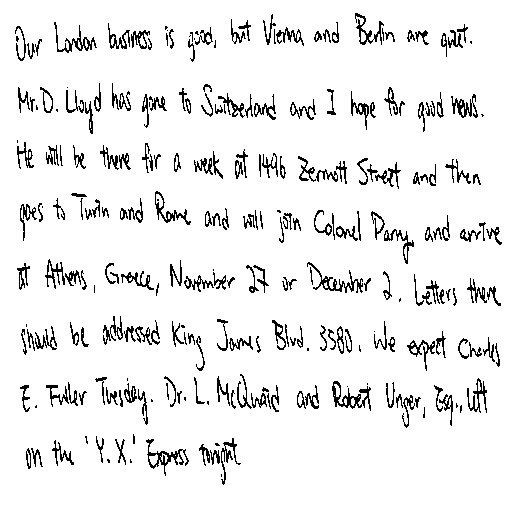 Our London business is good, but Vienna and Berlin are quiet.
Mr. D. Lloyd has gone to Switzerland and I hope for good news.
He will be there for a week at 1496 Zermott Street and then
goes to Turin and Rome and will join Colonel Parry and arrive
at Athens, Greece, November 27 or December 2. Letters there
should be addressed King James Blvd. 3580. We expect Charles
E. Fuller Tuesday. Dr. L. McQuaid and Robert Unger, Esq., left
on the 'Y.X.' Express tonight